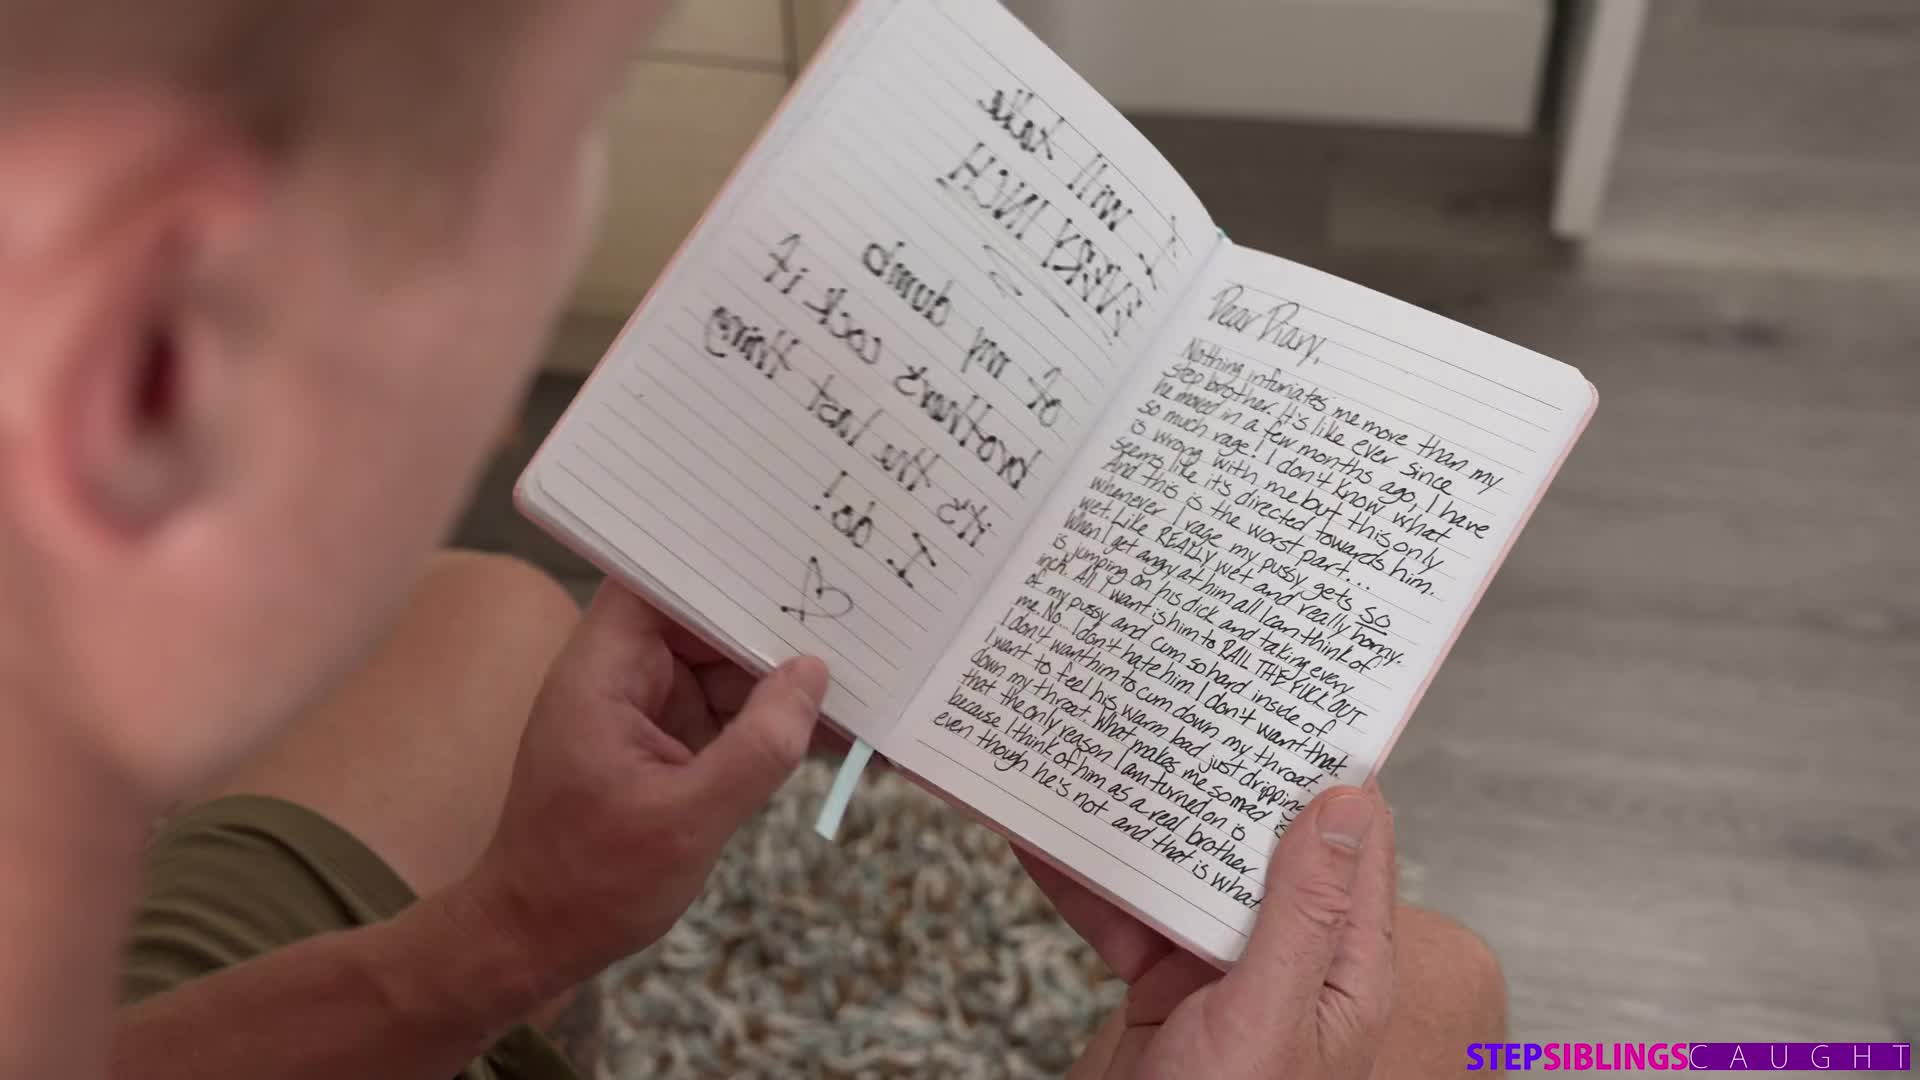 I will take
EVERY INCH
of my dumb
brothers cock if
it's the last thing
I do!
Dear Diary,
Nothing infuriates me more than my
step brother. It's like ever since
he moved in a few months ago, I have
so much rage! I don't know what
is wrong with me but this only
seems like it's directed towards him.
And this is the worst part...
whenever I rage my pussy gets so
wet. Like REALLY wet and really horny.
When I get angry at him all I can think of
is jumping on his dick and taking every
inch. All I want is him to RAIL THE FUCK OUT
of my pussy and cum so hard inside of
me. No... I don't hate him. I don't want that.
I don't want him to cum down my throat.
I want to feel his warm bad just dripping
down my throat. What makes me so mad is
that the only reason I am turned on is
because I think of him as a real brother
even though he's not and that is what
STEPSIBLINGSCAUGHT